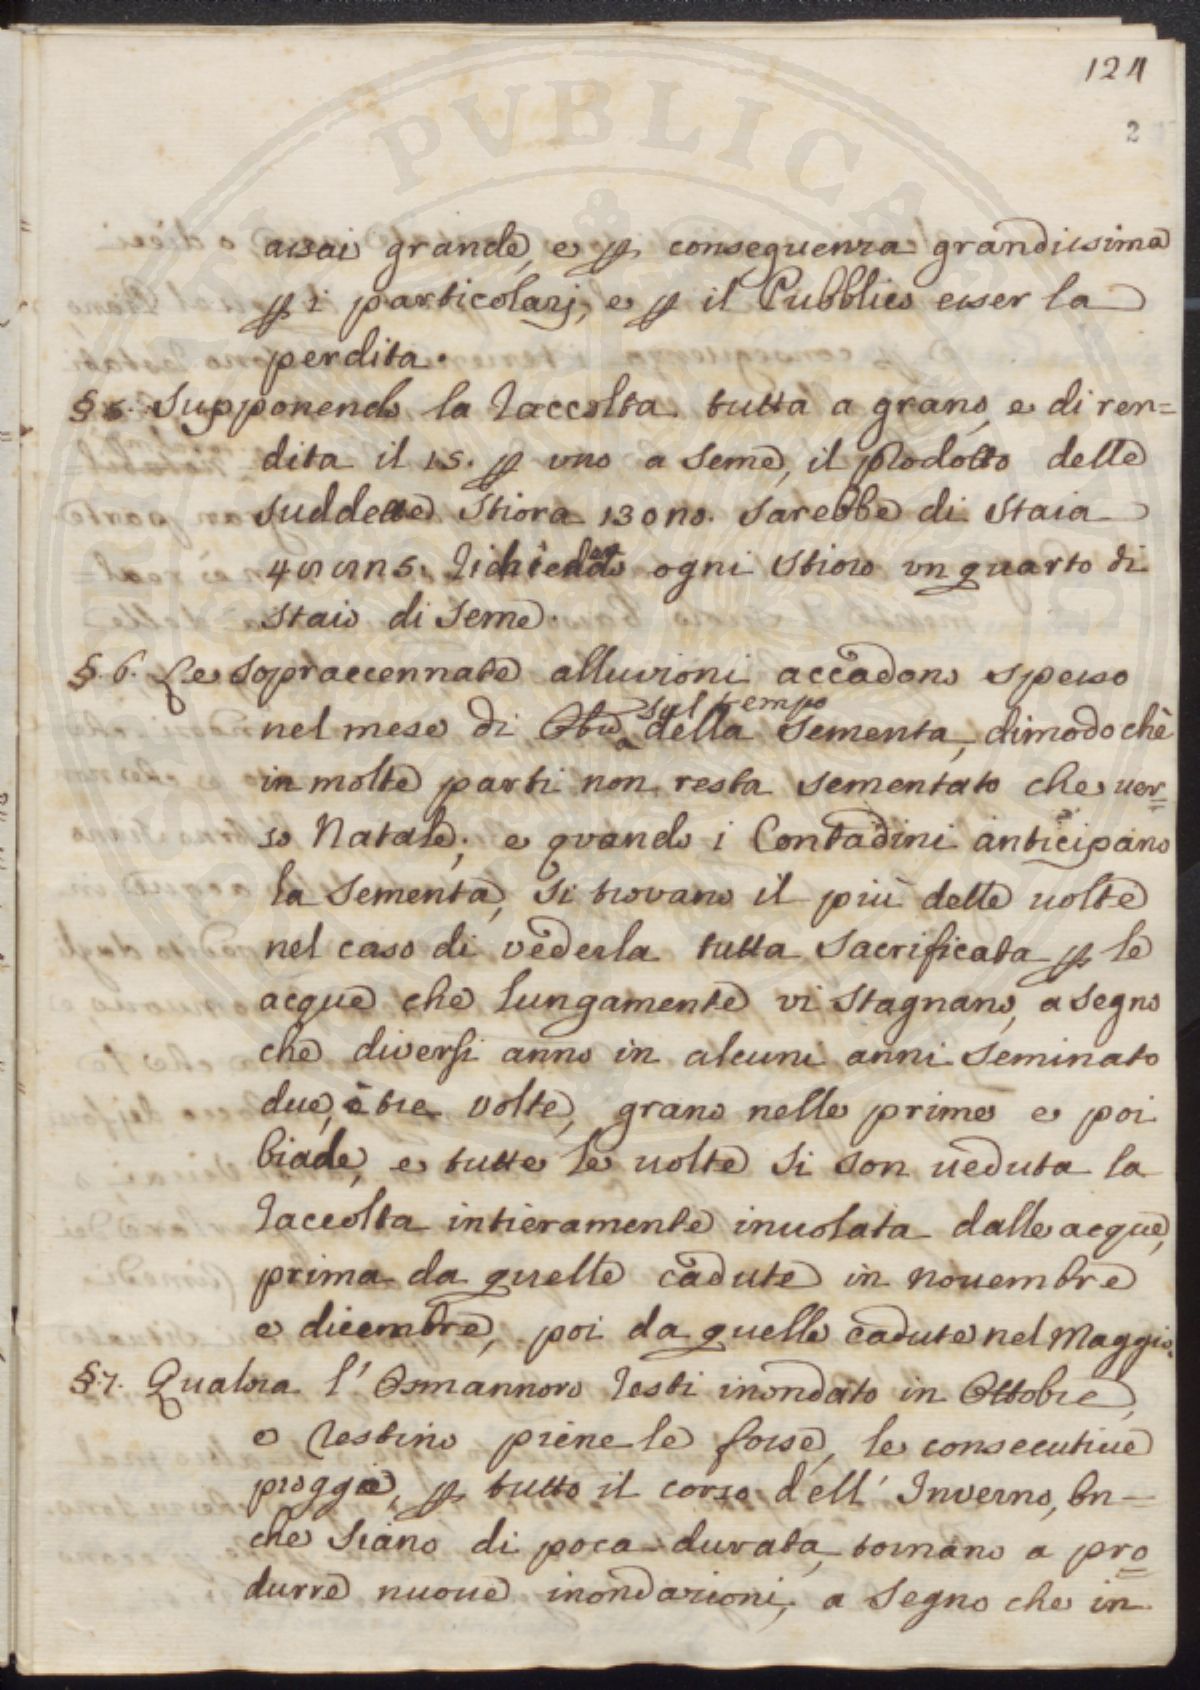 124
2
assai grande, e p conseguenza grandissima
p i particolarj, e p il Pubblico esser la
perdita.
§ 5. Supponendo la raccolta tutta a grano, e di ren=
dita il 15. p uno a seme, il prodotto delle
suddette stiora 130no. sarebbe di staia
ogni stioro un quarto di
staio di seme.
§. 6. Le sopraccennate alluvioni accadono spesso
nel mese di Ottobre sul tempo della sementa, dimodochè
in molte parti non resta sementato che ver=
so Natale; e quando i Contadini anticipano
la sementa, si trovano il più delle volte
nel caso di vederla tutta sacrificata p le
acque che lungamente vi stagnano, a segno
che diversi anno in alcuni anni seminato
due, è tre volte, grano nelle prime e poi
biade, e tutte le volte si son veduta la
raccolta intieramente involata dalle acque,
prima da quelle cadute in novembre
e dicembre, poi da quelle cadute nel Maggio.
§. 7. Qualora l' Osmannoro resti inondato in Ottobre,
o restino piene le fosse, le consecutive
piogge, p tutto il corso dell' Inverno, bn-
che siano di poca durata, tornano a pro=
durre nuove inondazioni, a segno che in